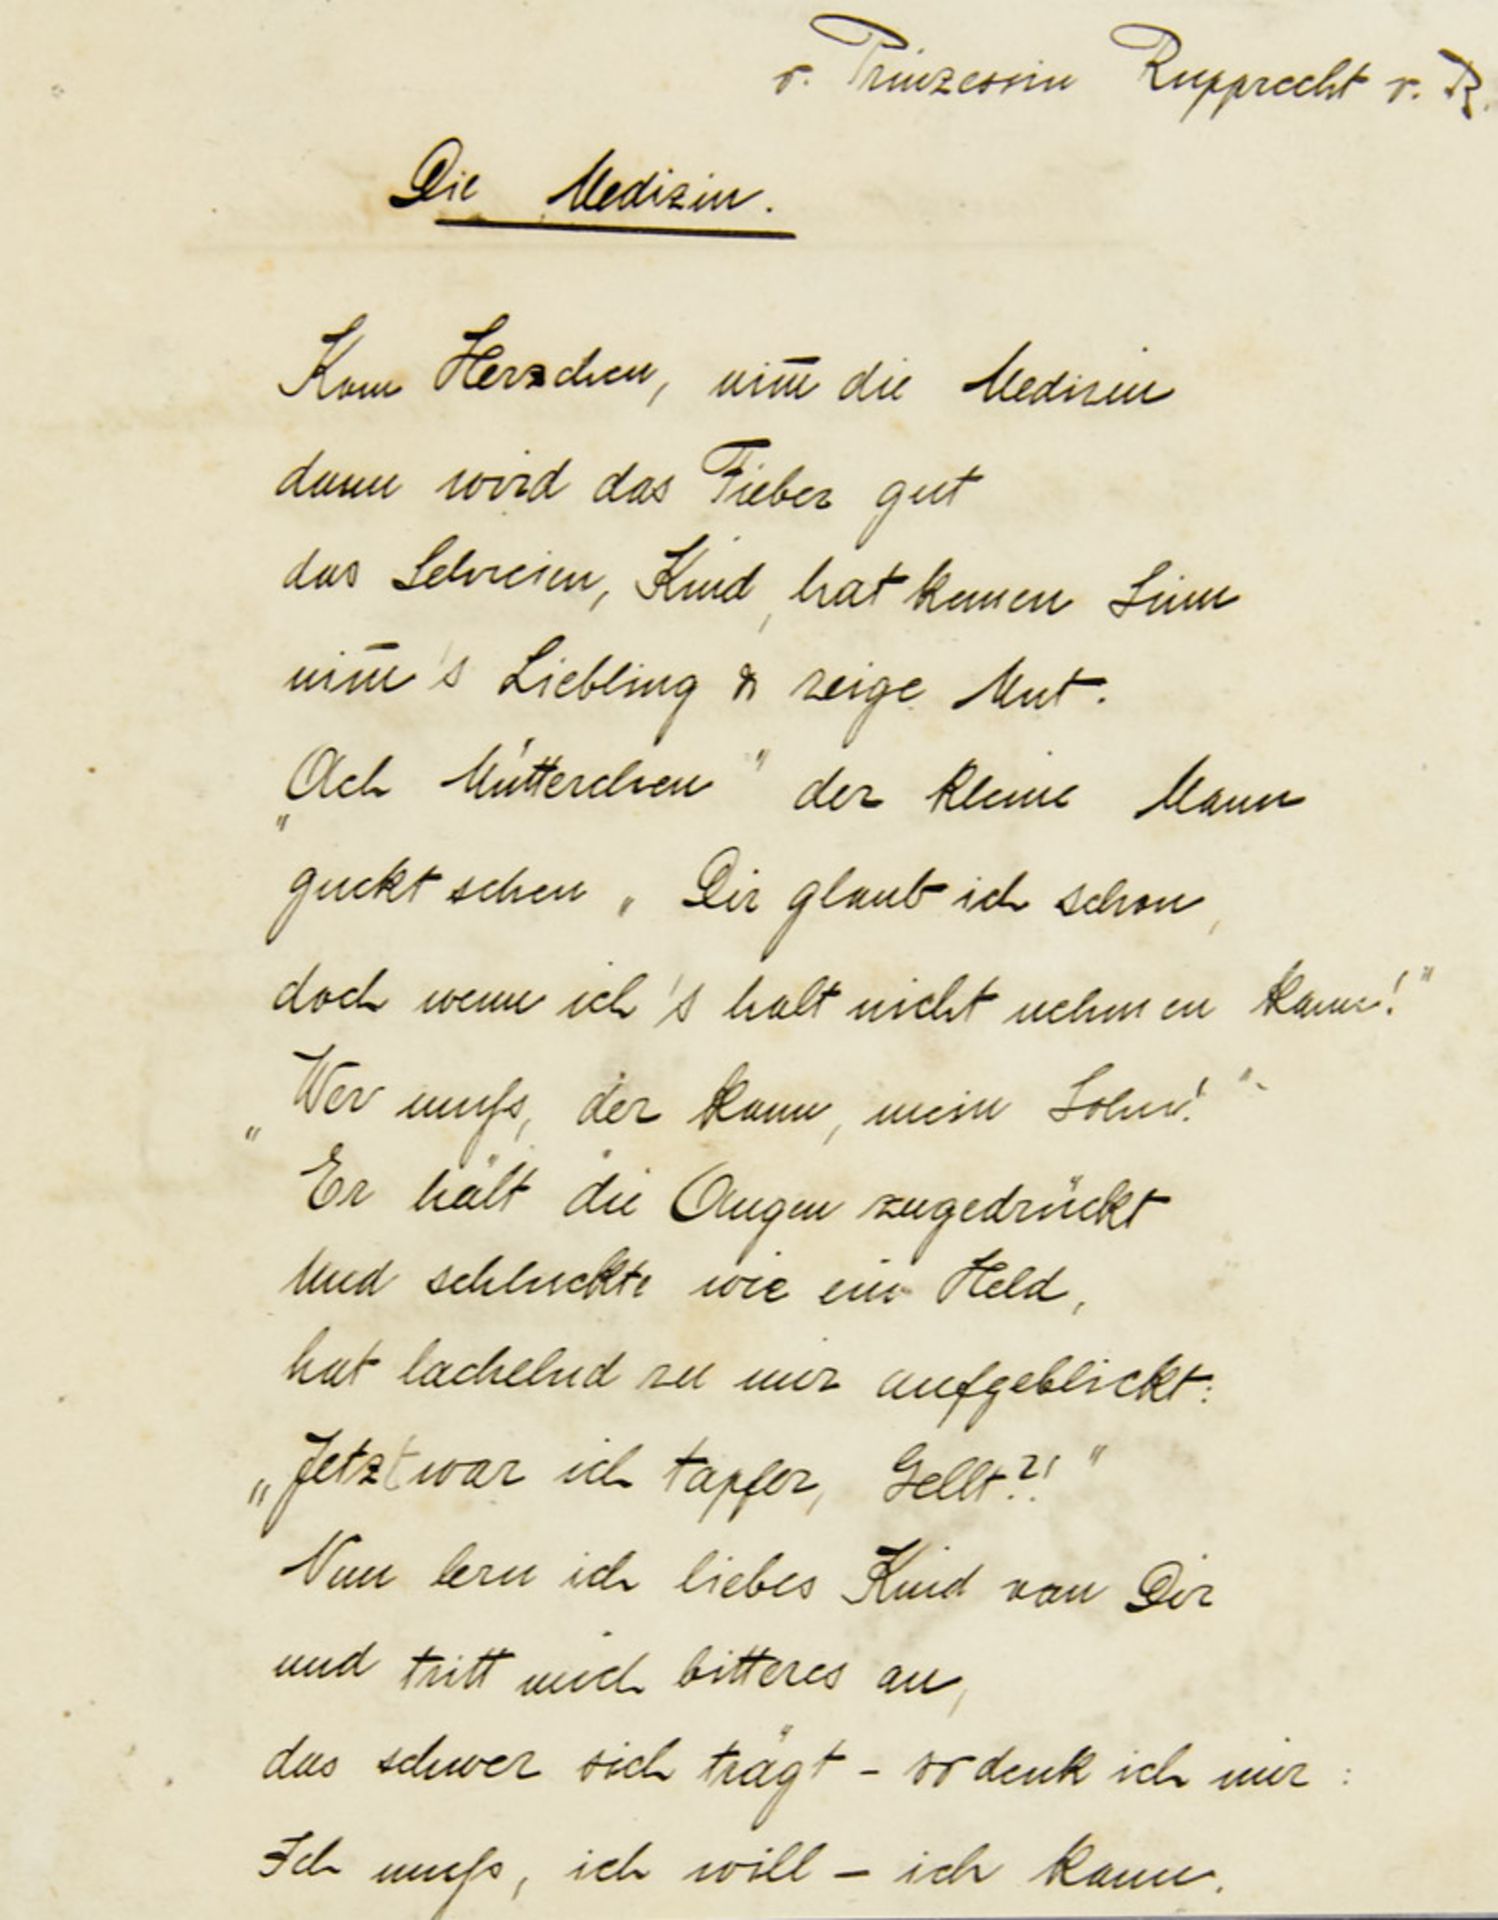 v. Prinzessin Rupprecht v. B.
Die Medizin.
Kom Herzchen, nim̅ die Medizin
dann wird das Fieber gut
das Schreien, Kind, hat keinen Sinn
nim̅'s Liebling & zeige Mut.
„Ach Mütterchen" der kleine Mann
guckt scheu „Dir glaub ich schon,
doch wenn ich's halt nicht nehmen kann!"
„Wer muſs, der kann, mein Sohn!"
Er hält die Augen zugedrückt
Und schluckte wie ein Held,
hat lächelnd zu mir aufgeblickt:
„Jetzt war ich tapfer, Gellt?!"
Nun lern ich liebes Kind von Dir
und tritt mich bitteres an,
das schwer sich trägt – so denk ich mir:
Ich muſs, ich will – ich kann.